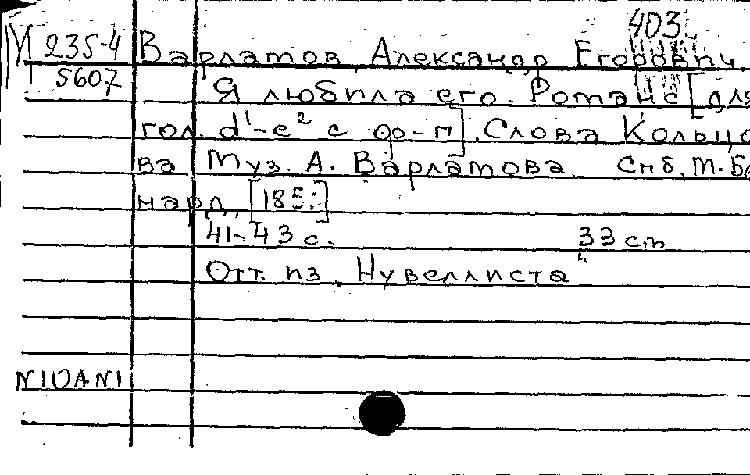 403
М 235-4 Варламов, Александр Егорович.
5607 Я любила его. Романс [для
гол. d¹-e² с фо-п]. Слова Кольцо
ва Муз. А. Варламова. Спб, М. Бе
нард, [185-]
41-43 с. 33 см
Отт. из „Нувеллиста"